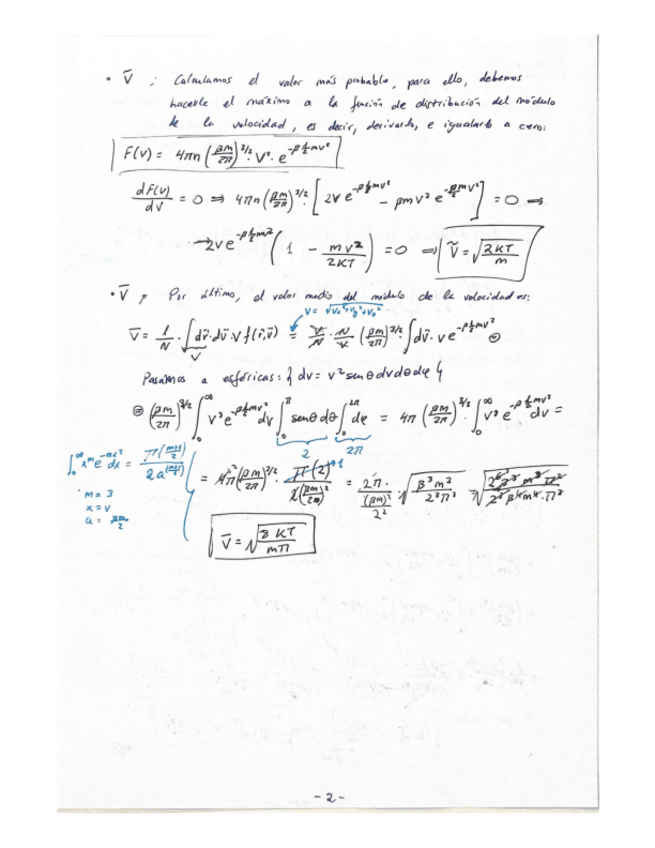 • Ṽ ; Calculamos el valor más probable, para ello, debemos
hacerle el máximo a la función de distribución del módulo
de la velocidad, es decir, derivarla, e igualarla a cero:
F(v) = 4πn (βm/2π)^3/2 · V² · e^-β½mv²
dF(v)/dv = 0 ⇒ 4πn (βm/2π)^3/2 · [2v e^-β½mv² - βmv² e^-βmv²/2] = 0 ⇒
→ 2v e^-β½mv² (1 - mv²/2KT) = 0 ⇒ Ṽ = √(2KT/m)
• V̄ ; Por último, el valor medio del módulo de la velocidad es:
V = √(Vx²+Vy²+Vz²)
V̄ = 1/N · ∫ dr̄ · dv̄ · v f(r̄,v̄) = V/N · N/V · (βm/2π)^3/2 · ∫ dv̄ · v e^-β½mv² ⊜
V
Pasamos a esféricas: { dv = v² senθ dv dθ dφ }
⊜ (βm/2π)^3/2 ∫₀^∞ v³ e^-β½mv² dv ∫₀^π senθ dθ ∫₀^2π dφ = 4π (βm/2π)^3/2 · ∫₀^∞ v³ e^-β½mv² dv =
2 2π
∫₀^∞ x^m e^-ax² dx = Γ((m+1)/2) / 2a^((m+1)/2)
m = 3
x = v
a = βm/2
= 4π (βm/2π)^3/2 · Γ(2) / 2(βm/2)² = 2π / ((βm)²/2²) · √(β³m³/2³π³)
V̄ = √(8KT/mπ)
- 2 -